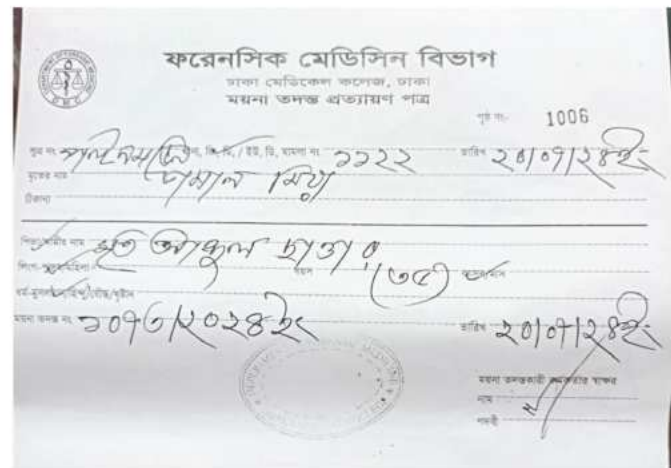 ফরেনসিক মেডিসিন বিভাগ
ঢাকা মেডিকেল কলেজ, ঢাকা
ময়না তদন্ত প্রত্যায়ণ পত্র
পৃষ্ঠা নং- 1006
সূত্র নং জি, ডি, / ইউ, ডি, মামলা নং ১১২২ তারিখ ২০/০৭/২৪ইং
মৃতের নাম মিয়া
ঠিকানা
পিতা/স্বামীর নাম মৃত আব্দুল ছাত্তার
লিংগ- বয়স (৩৫)
ধর্ম-মুসলমান/হিন্দু/বৌদ্ধ/খৃষ্টান
ময়না তদন্ত নং ১০৭৩/২০২৪ইং তারিখ ২০/০৭/২৪ইং
ময়না তদন্তকারী কর্মকর্তার স্বাক্ষর
নাম
পদবী